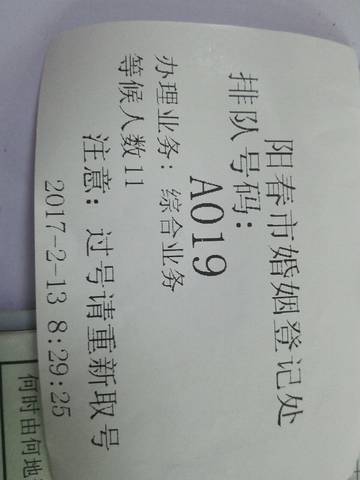 阳春市婚姻登记处
排队号码:
A019
办理业务: 综合业务
等候人数11
注意: 过号请重新取号
2017-2-13 8:29:25
何时由何地